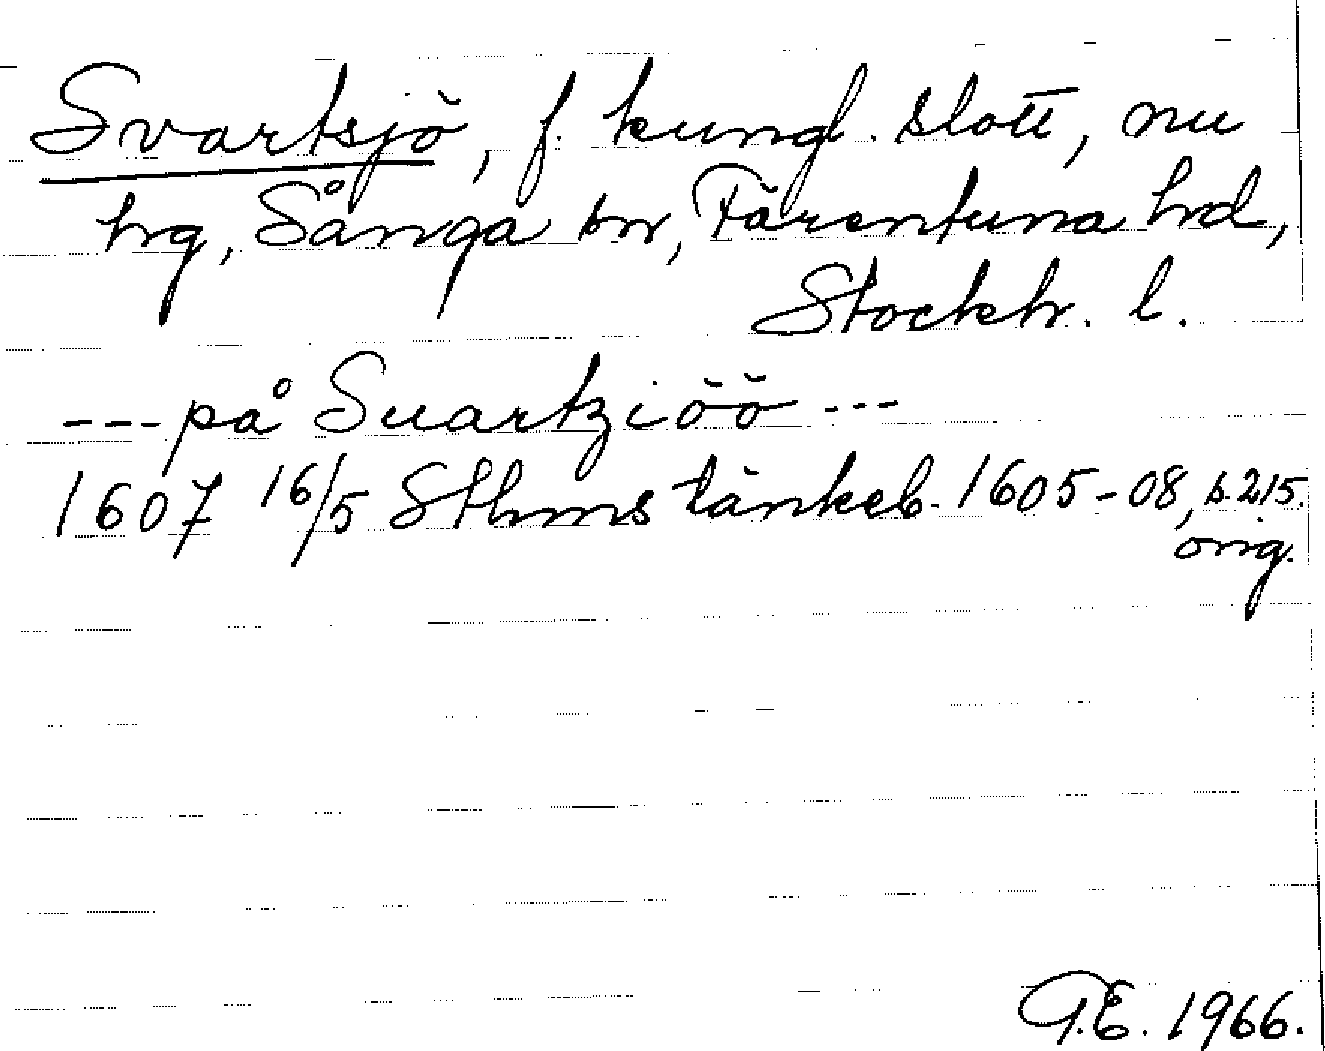 Svartsjö, f. kungl. slott, nu
hrg, Sånga sn, Färentuna hrd,
Stockh. l.
--- på Suartziöö ---
1607 16/5 Sthms tänkeb. 1605-08, s. 215.
orig.
G.E. 1966.